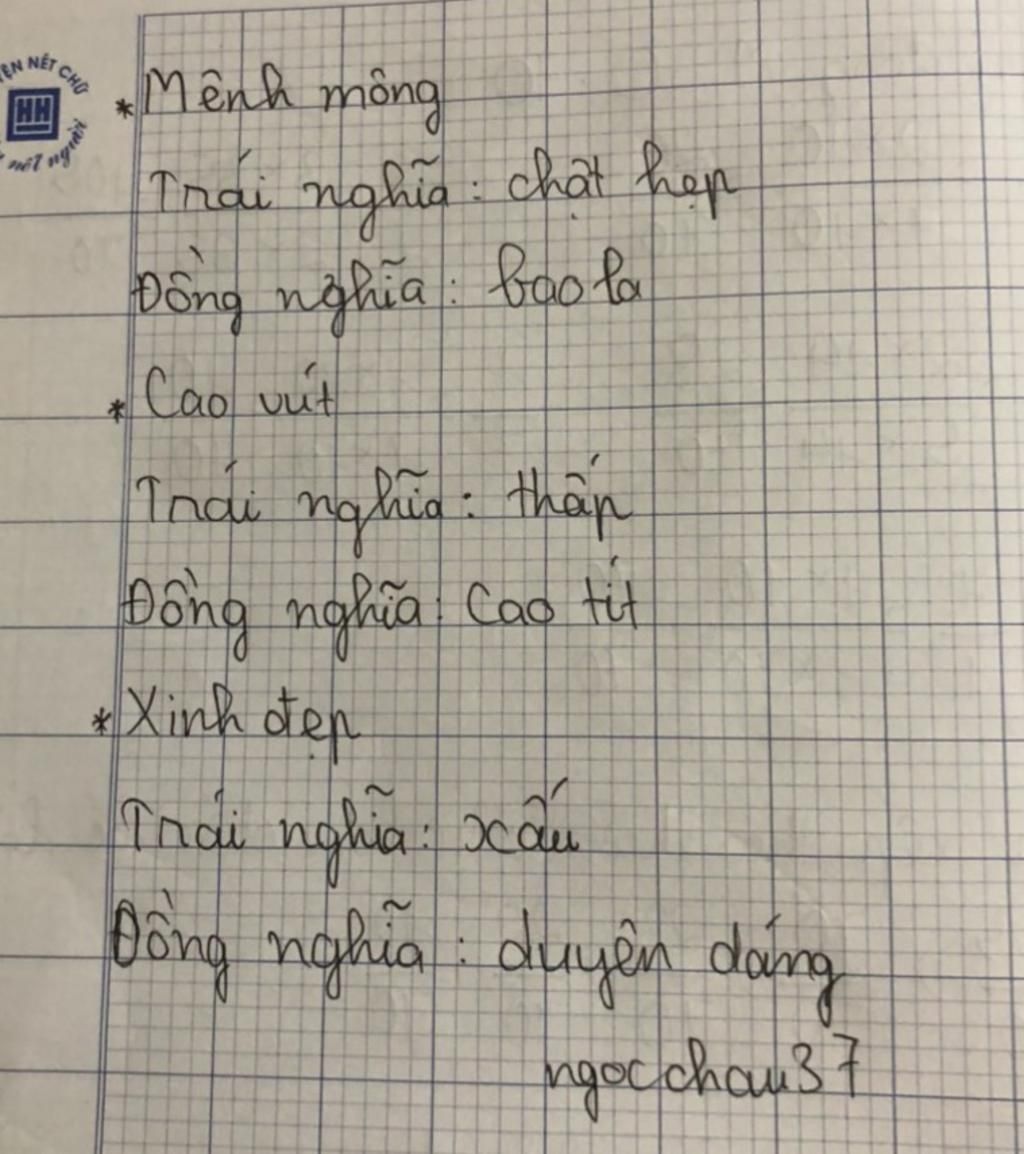 ỆN NÉT CHỮ
HH
nết người
* Mênh mông
Trái nghĩa : chật hẹp
Đồng nghĩa : bao la
* Cao vút
Trái nghĩa : thấp
Đồng nghĩa : Cao tít
* Xinh đẹp
Trái nghĩa : xấu
Đồng nghĩa : duyên dáng
ngocchau37